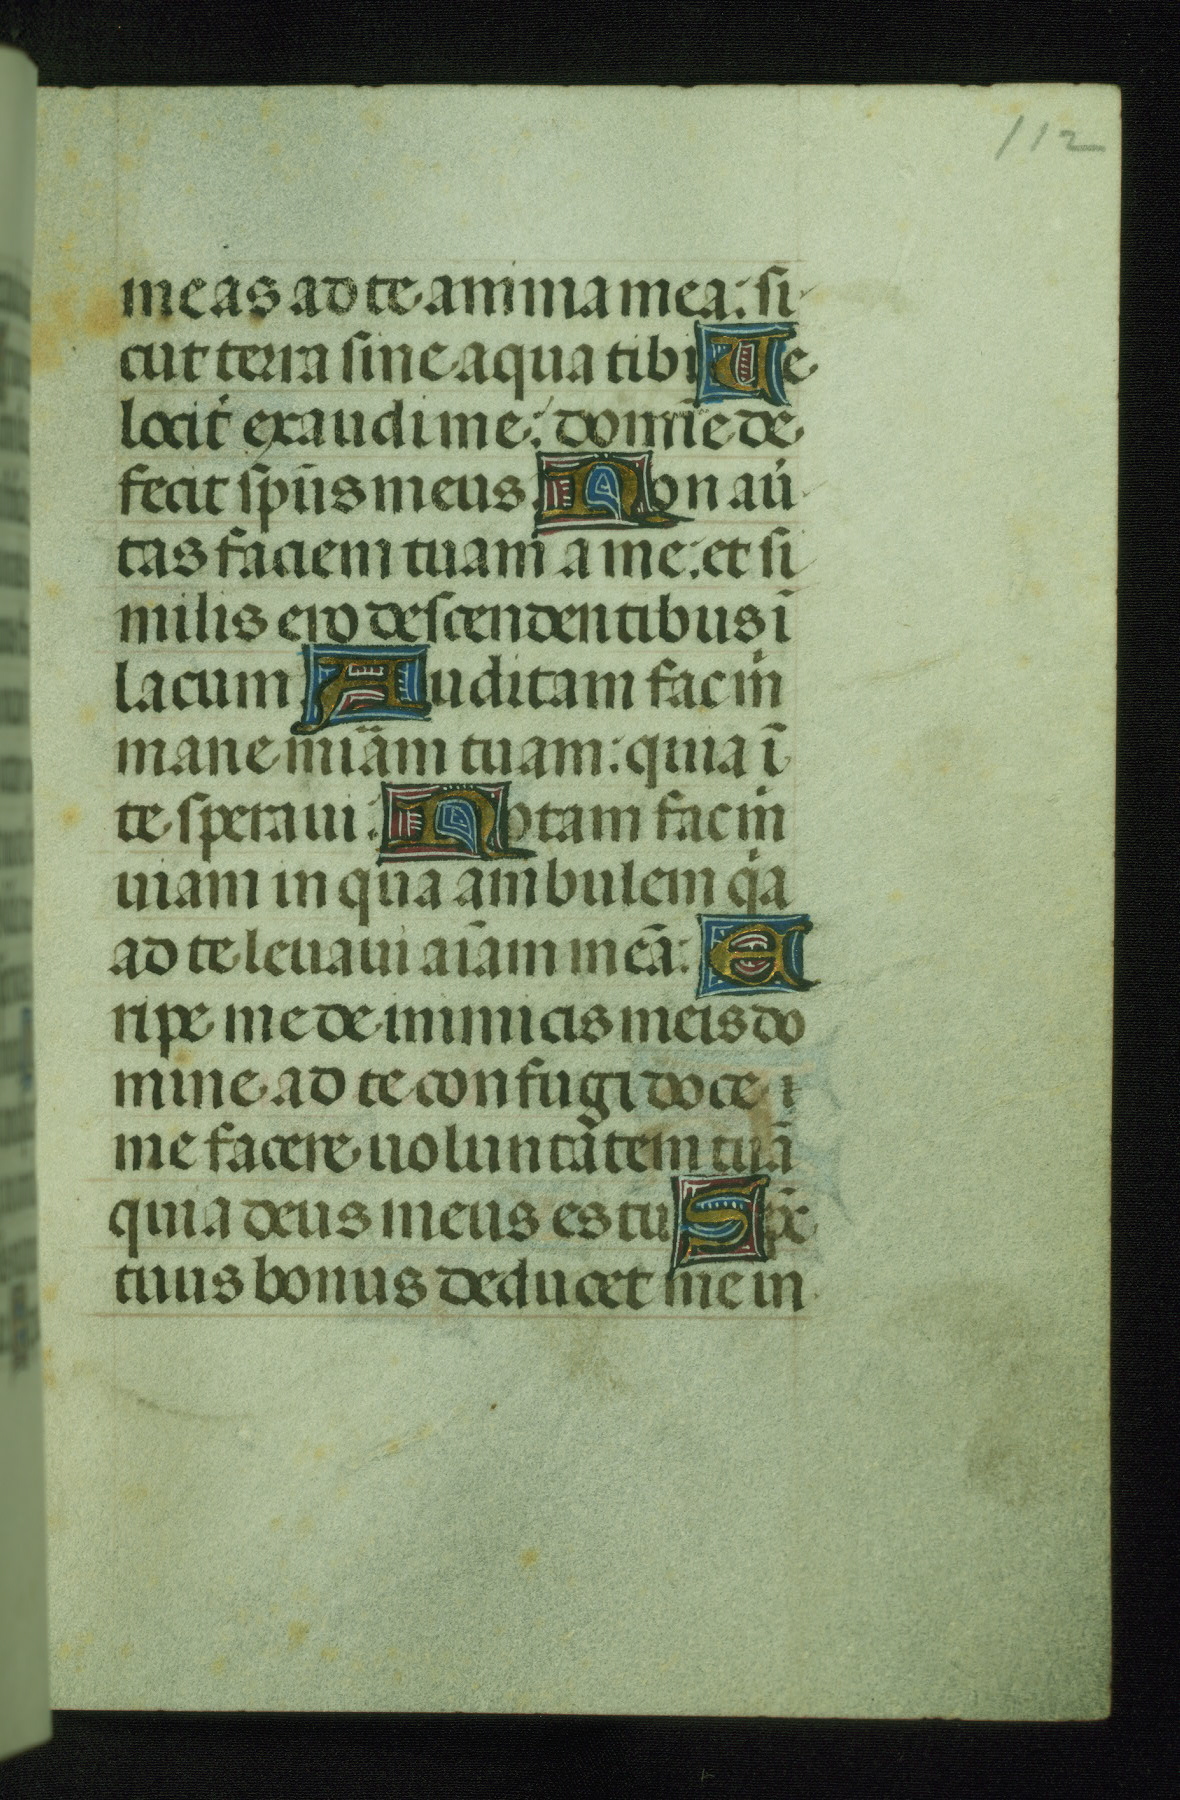 112
meas ad te anima mea: si
cut terra sine aqua tibi Ue
locit̛ exaudi me: domīe de
fecit sp̄us meus Non au̇
tas faciem tuam a me: et si
milis ero descendentibus ī
lacum Auditam fac m̍
mane mīam tuam: quia ī
te speraui. Notam fac m̍
uiam in qua ambulem q̍a
ad te leuaui aīam meā: E
ripe me de inimicis meis do
mine ad te confugi doce
me facere uoluntātem tuā
quia deus meus es tu Sp̄c
tuus bonus deducet me in